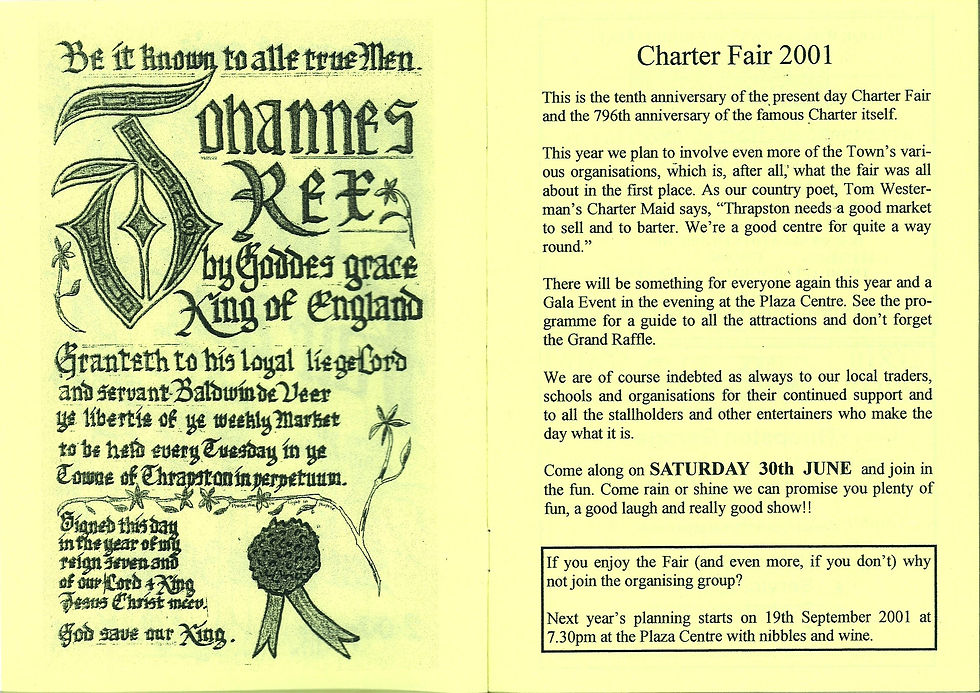 Be it known to alle true Men.
Johannes
Rex
by Goddes grace
King of England
Granteth to his loyal liege Lord
and servant Baldwin de Veer
ye libertie of ye weekly Market
to be held every Tuesday in ye
Towne of Thrapston in perpetuum.
Signed this day
in the year of my
reign seven and
of our Lord & King
Jesus Christ mccv.
God save our King.
Charter Fair 2001
This is the tenth anniversary of the present day Charter Fair
and the 796th anniversary of the famous Charter itself.
This year we plan to involve even more of the Town's vari-
ous organisations, which is, after all, what the fair was all
about in the first place. As our country poet, Tom Wester-
man's Charter Maid says, “Thrapston needs a good market
to sell and to barter. We're a good centre for quite a way
round.”
There will be something for everyone again this year and a
Gala Event in the evening at the Plaza Centre. See the pro-
gramme for a guide to all the attractions and don't forget
the Grand Raffle.
We are of course indebted as always to our local traders,
schools and organisations for their continued support and
to all the stallholders and other entertainers who make the
day what it is.
Come along on SATURDAY 30th JUNE and join in
the fun. Come rain or shine we can promise you plenty of
fun, a good laugh and really good show!!
If you enjoy the Fair (and even more, if you don't) why
not join the organising group?
Next year's planning starts on 19th September 2001 at
7.30pm at the Plaza Centre with nibbles and wine.